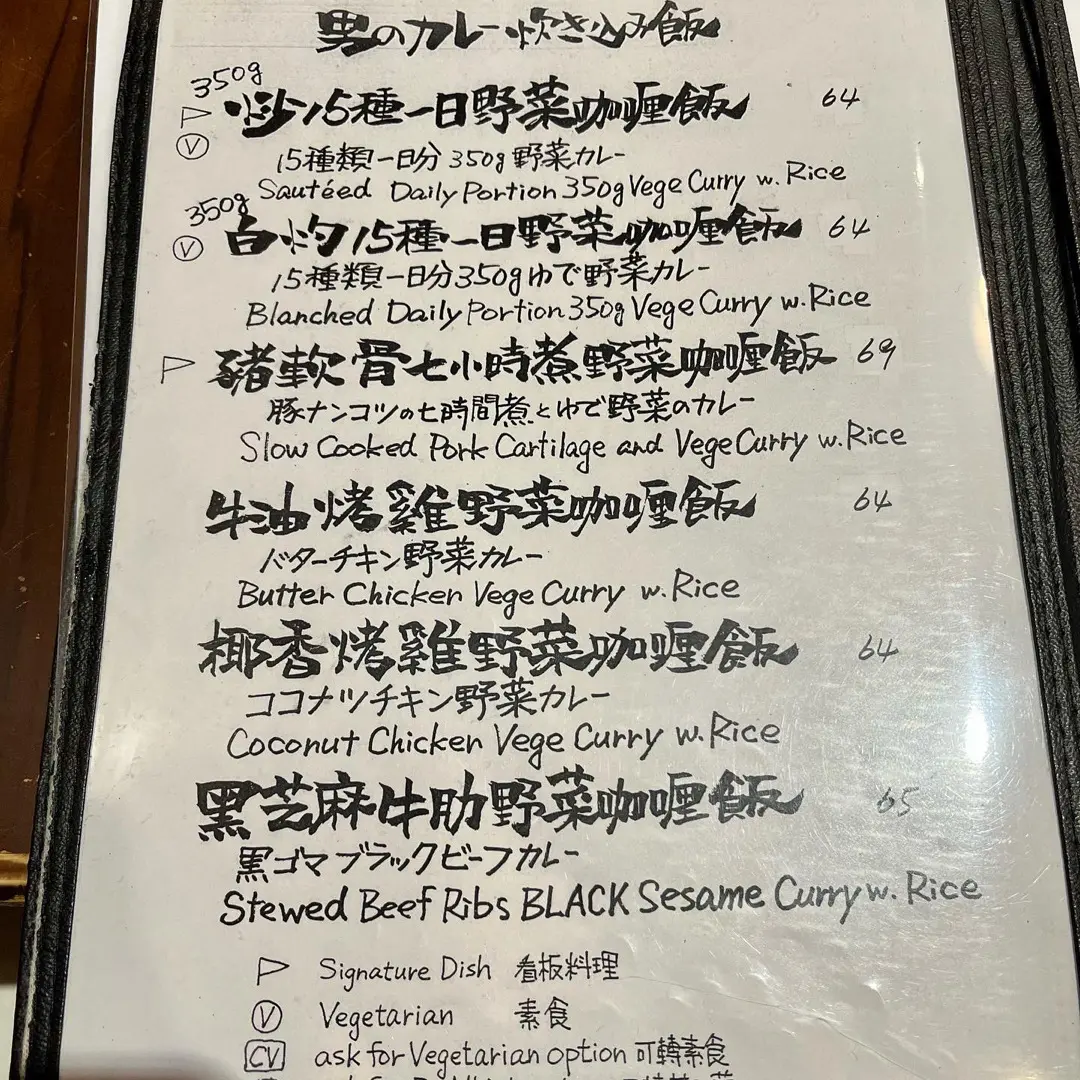 男のカレー炊き込み飯
350g
炒15種一日野菜咖喱飯 64
V
15種類一日分350g野菜カレー
Sautéed Daily Portion 350g Vege Curry w. Rice
350g
V 白灼15種一日野菜咖喱飯 64
15種類一日分350gゆで野菜カレー
Blanched Daily Portion 350g Vege Curry w. Rice
豬軟骨七小時煮野菜咖喱飯 69
豚ナンコツの七時間煮とゆで野菜のカレー
Slow Cooked Pork Cartilage and Vege Curry w. Rice
牛油烤雞野菜咖喱飯 64
バターチキン野菜カレー
Butter Chicken Vege Curry w. Rice
椰香烤雞野菜咖喱飯 64
ココナツチキン野菜カレー
Coconut Chicken Vege Curry w. Rice
黑芝麻牛肋野菜咖喱飯 65
黒ゴマブラックビーフカレー
Stewed Beef Ribs BLACK Sesame Curry w. Rice
Signature Dish 看板料理
V Vegetarian 素食
CV ask for Vegetarian option 可轉素食